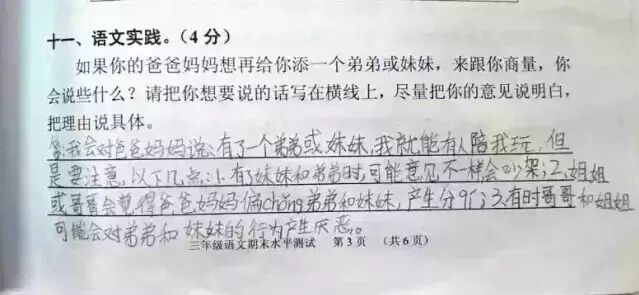 十一、语文实践。（4分）
如果你的爸爸妈妈想再给你添一个弟弟或妹妹，来跟你商量，你
会说些什么？请把你想要说的话写在横线上，尽量把你的意见说明白，
把理由说具体。
答:我会对爸爸妈妈说:有了一个弟弟或妹妹,我就能有人陪我玩,但
是要注意,以下几点:1.有了妹妹和弟弟时,可能意见不一样会吵架;2.姐姐
或哥哥会觉得爸爸妈妈偏chǒng弟弟和妹妹,产生分歧;3.有时哥哥和姐姐
可能会对弟弟和妹妹的行为产生厌恶。
三年级语文期末水平测试 第3页 （共6页）